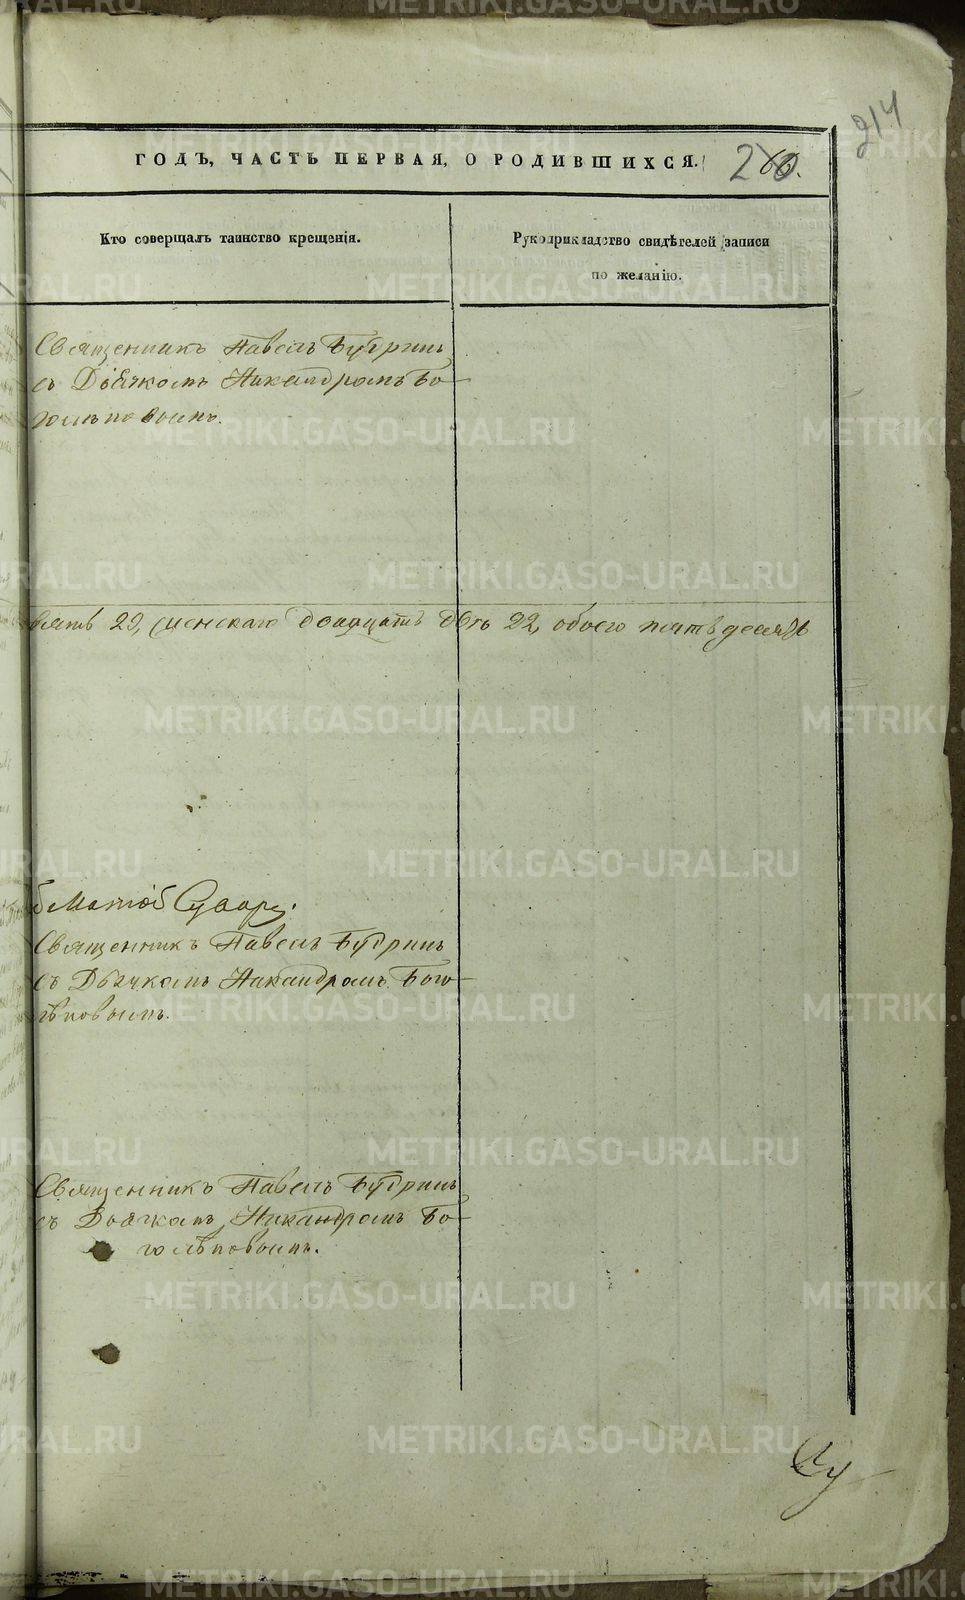 214
ГОДЪ, ЧАСТЬ ПЕРВАЯ, О РОДИВШИХСЯ.
Кто совершалъ таинство крещенія.
Рукоприкладство свидѣтелей записи
по желанію.
Священникъ Павелъ Бутринъ
съ Дьячкомъ Никандромъ Бо-
голѣповымъ.
вять 29, женскаго двадцать два 22, обоего пятьдесятъ
Священникъ Павелъ Бутринъ
съ Дьячкомъ Никандромъ Бого-
лѣповымъ.
Священникъ Павелъ Бутринъ
съ Дьячкомъ Никандромъ Бо-
голѣповымъ.
METRIKI.GASO-URAL.RU